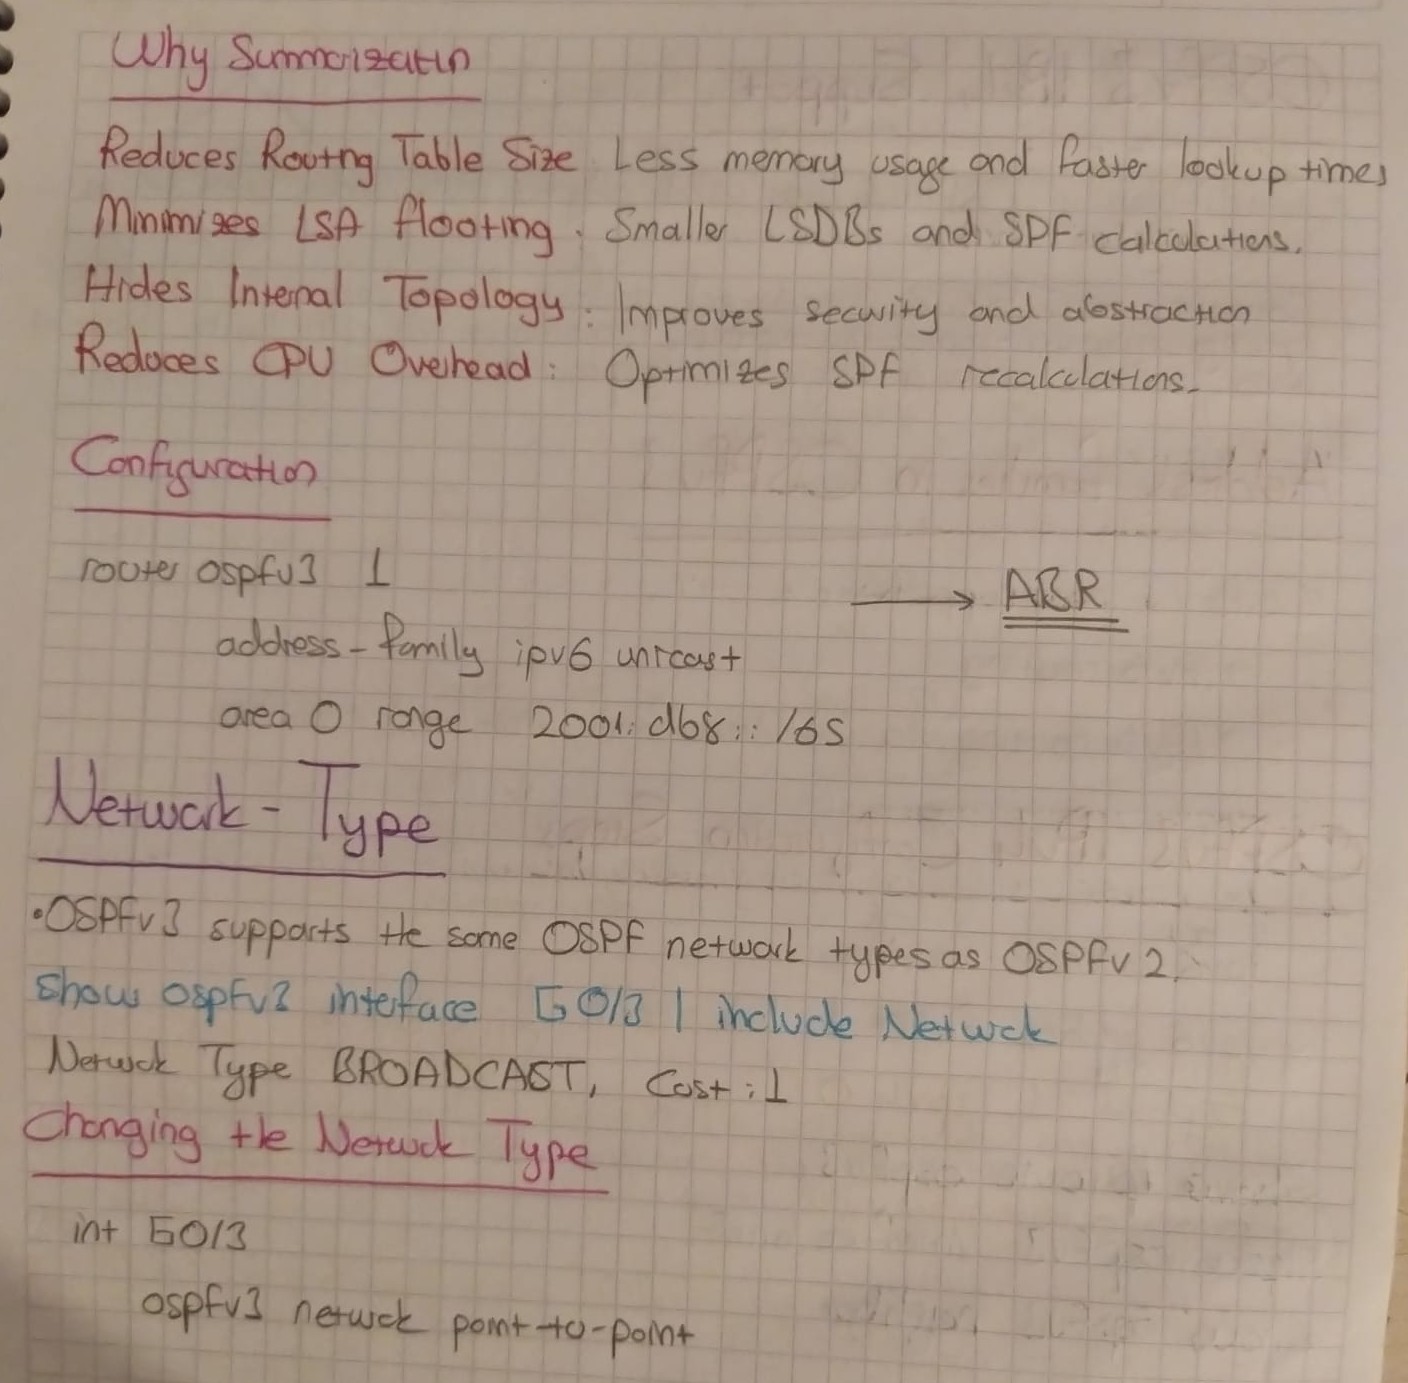 Why Summarizatin
Reduces Routing Table Size Less memory usage and faster lookup times
Minimizes LSA flooting. Smaller LSDBs and SPF calculations.
Hides Internal Topology: Improves security and abstraction
Reduces CPU Overhead: Optimizes SPF recalculations.
Configuration
router ospfv3 1
→ ABR
address-family ipv6 unicast
area 0 range 2001:db8::/65
Network-Type
•OSPFv3 supports the same OSPF network types as OSPFv2.
Show ospfv3 interface G0/3 | include Network
Network Type BROADCAST, Cost:1
Changing the Network Type
int G0/3
ospfv3 network point-to-point